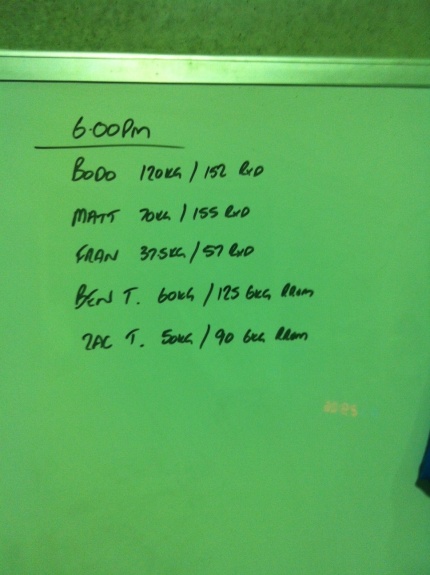 6.00pm
BODO 120KG / 152 RXD
MATT 70KG / 155 RXD
FRAN 37.5KG / 57 RXD
BEN T. 60KG / 125 6KG
ZAC T. 50KG / 90 6KG